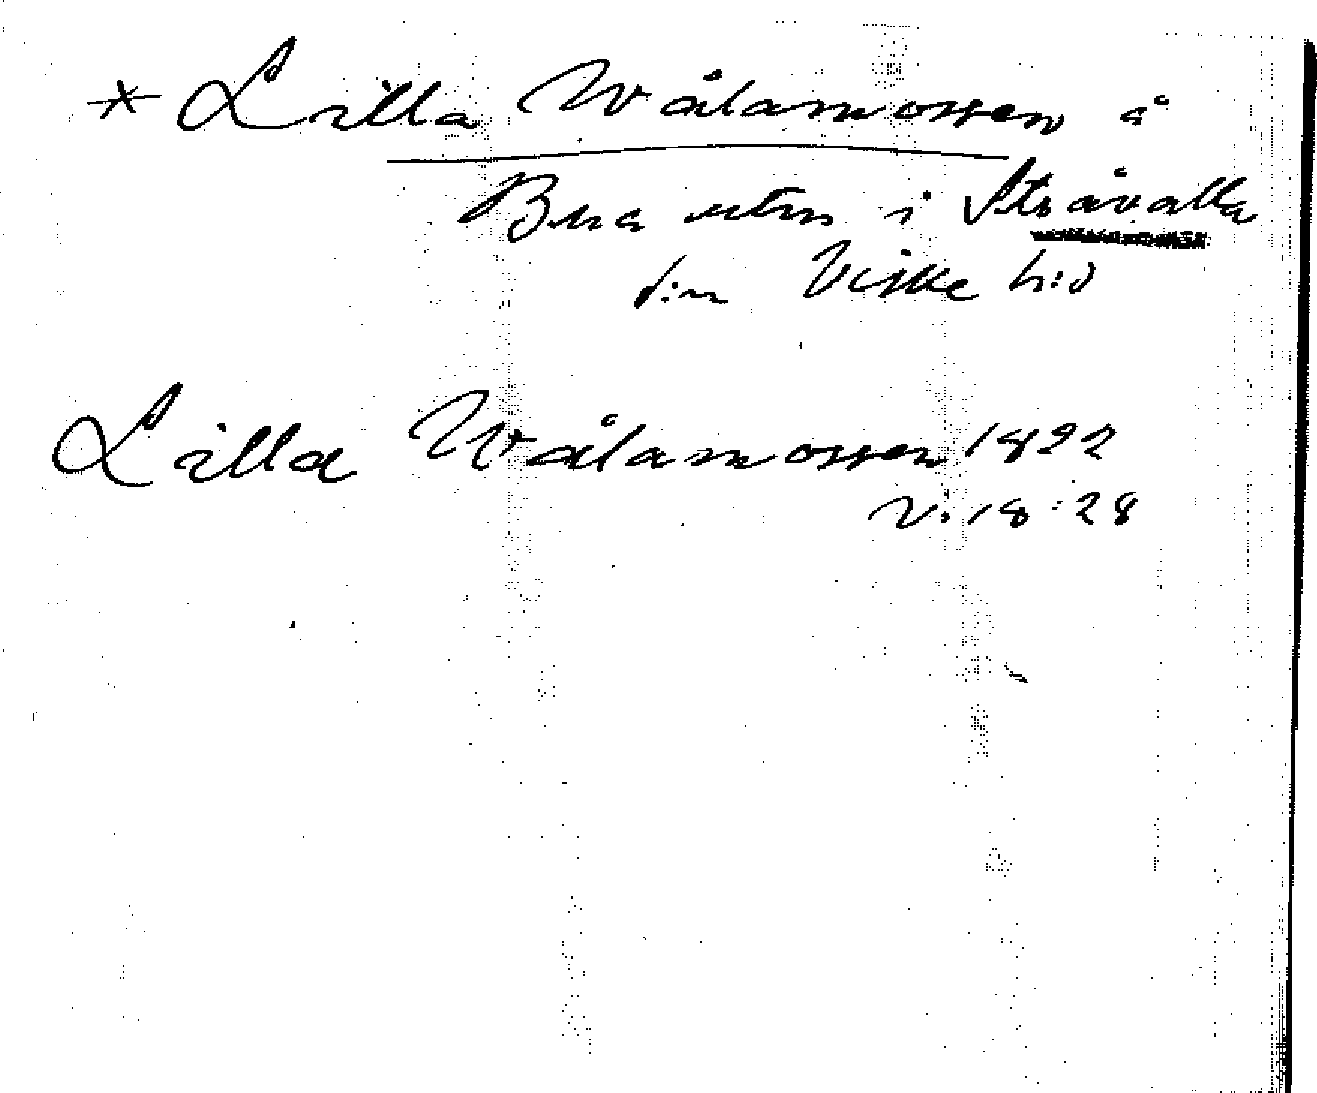 * Lilla Wålamossen å
Bua utm i Stråvalla
sn Viske hd
Lilla Wålamossen 1822
V: 18:28